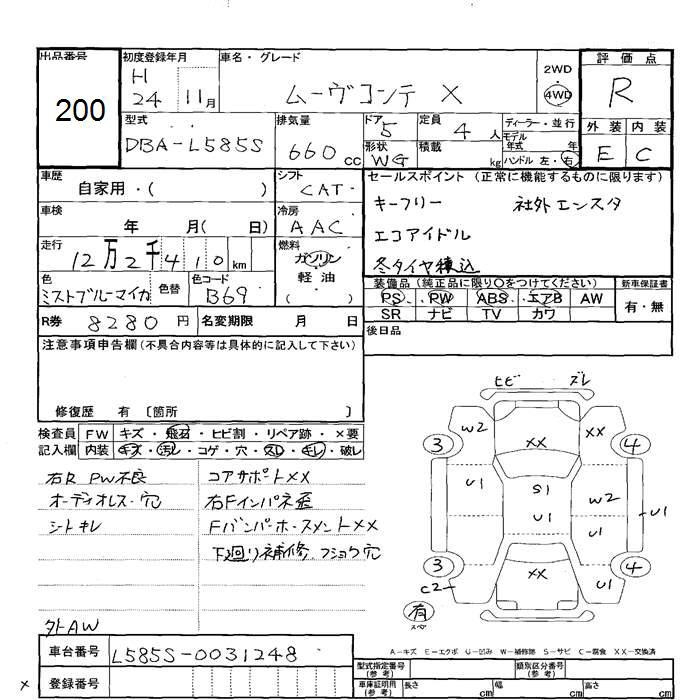 出品番号
200
初度登録年月
H
24 11月
車名・グレード
ムーヴコンテ X
2WD
・
4WD
評価点
R
外装 内装
E C
型式
DBA-L585S
排気量
660cc
ドア
5
定員
4人
形状
WG
積載
kg
ディーラー・並行
モデル
年式 年
ハンドル 左・右
車歴
自家用・( )
シフト
CAT
セールスポイント (正常に機能するものに限ります)
キーフリー 社外エンスタ
エコアイドル
冬タイヤ積込
車検
年 月( 日)
冷房
AAC
走行
12万2千410km
燃料
ガソリン
軽油
( )
色
ミストブルーマイカ
色替
色コード
B69
装備品 (純正品に限り○をつけてください)
新車保証書
PS PW ABS エアB AW
有・無
SR ナビ TV カワ
R券 8280円
名変期限 月 日
後日品
注意事項申告欄(不具合内容等は具体的に記入して下さい)
修復歴 有 〔箇所 〕
検査員
記入欄
FW キズ・飛石・ヒビ割・リペア跡・×要
内装 キズ・汚レ・コゲ・穴・欠レ・キレ・破レ
右R PW不良
コアサポートXX
オーディオレス・穴
右Fインパネ歪
シートキレ
Fバンパーホースメント××
下廻り補修、フショク穴
外AW
ヒビ ズレ
W2 XX XX
3 4
U1 S1 W2
U1 U1 U1
3 4
C2 XX U1
有
スペ
A-キズ E-エクボ U-凹み W-補修跡 S-サビ C-腐食 XX-交換済
車台番号 L585S-0031248
型式指定番号
(参考)
類別区分番号
(参考)
× 登録番号
車庫証明用
(参考)
長さ cm 幅 cm 高さ cm